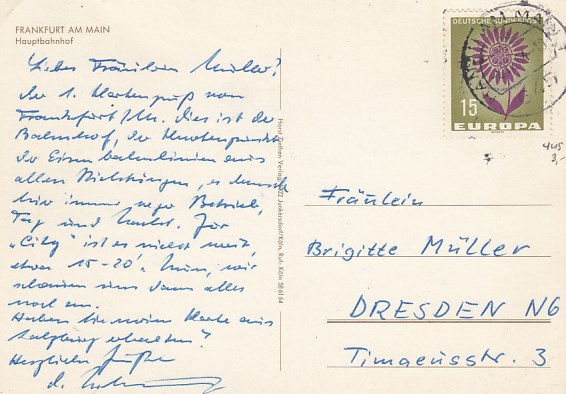 FRANKFURT AM MAIN
Hauptbahnhof
Liebes Fräulein Müller!
Der 1. Kartengruß von
Frankfurt/M. Dies ist der
Bahnhof, der Knotenpunkt
der Eisenbahnlinien aus
allen Richtungen, es herrscht
hier immer reger Betrieb,
Tag und Nacht. Zur
„City" ist es nicht weit,
etwa 15-20'. Nun, wir
schauen uns dann alles
noch an.
Haben Sie meine Karte aus
Salzburg erhalten?
Herzliche Grüße
DEUTSCHE BUNDESPOST
15
EUROPA
Fräulein
Brigitte Müller
DRESDEN N6
Timaeusstr. 3